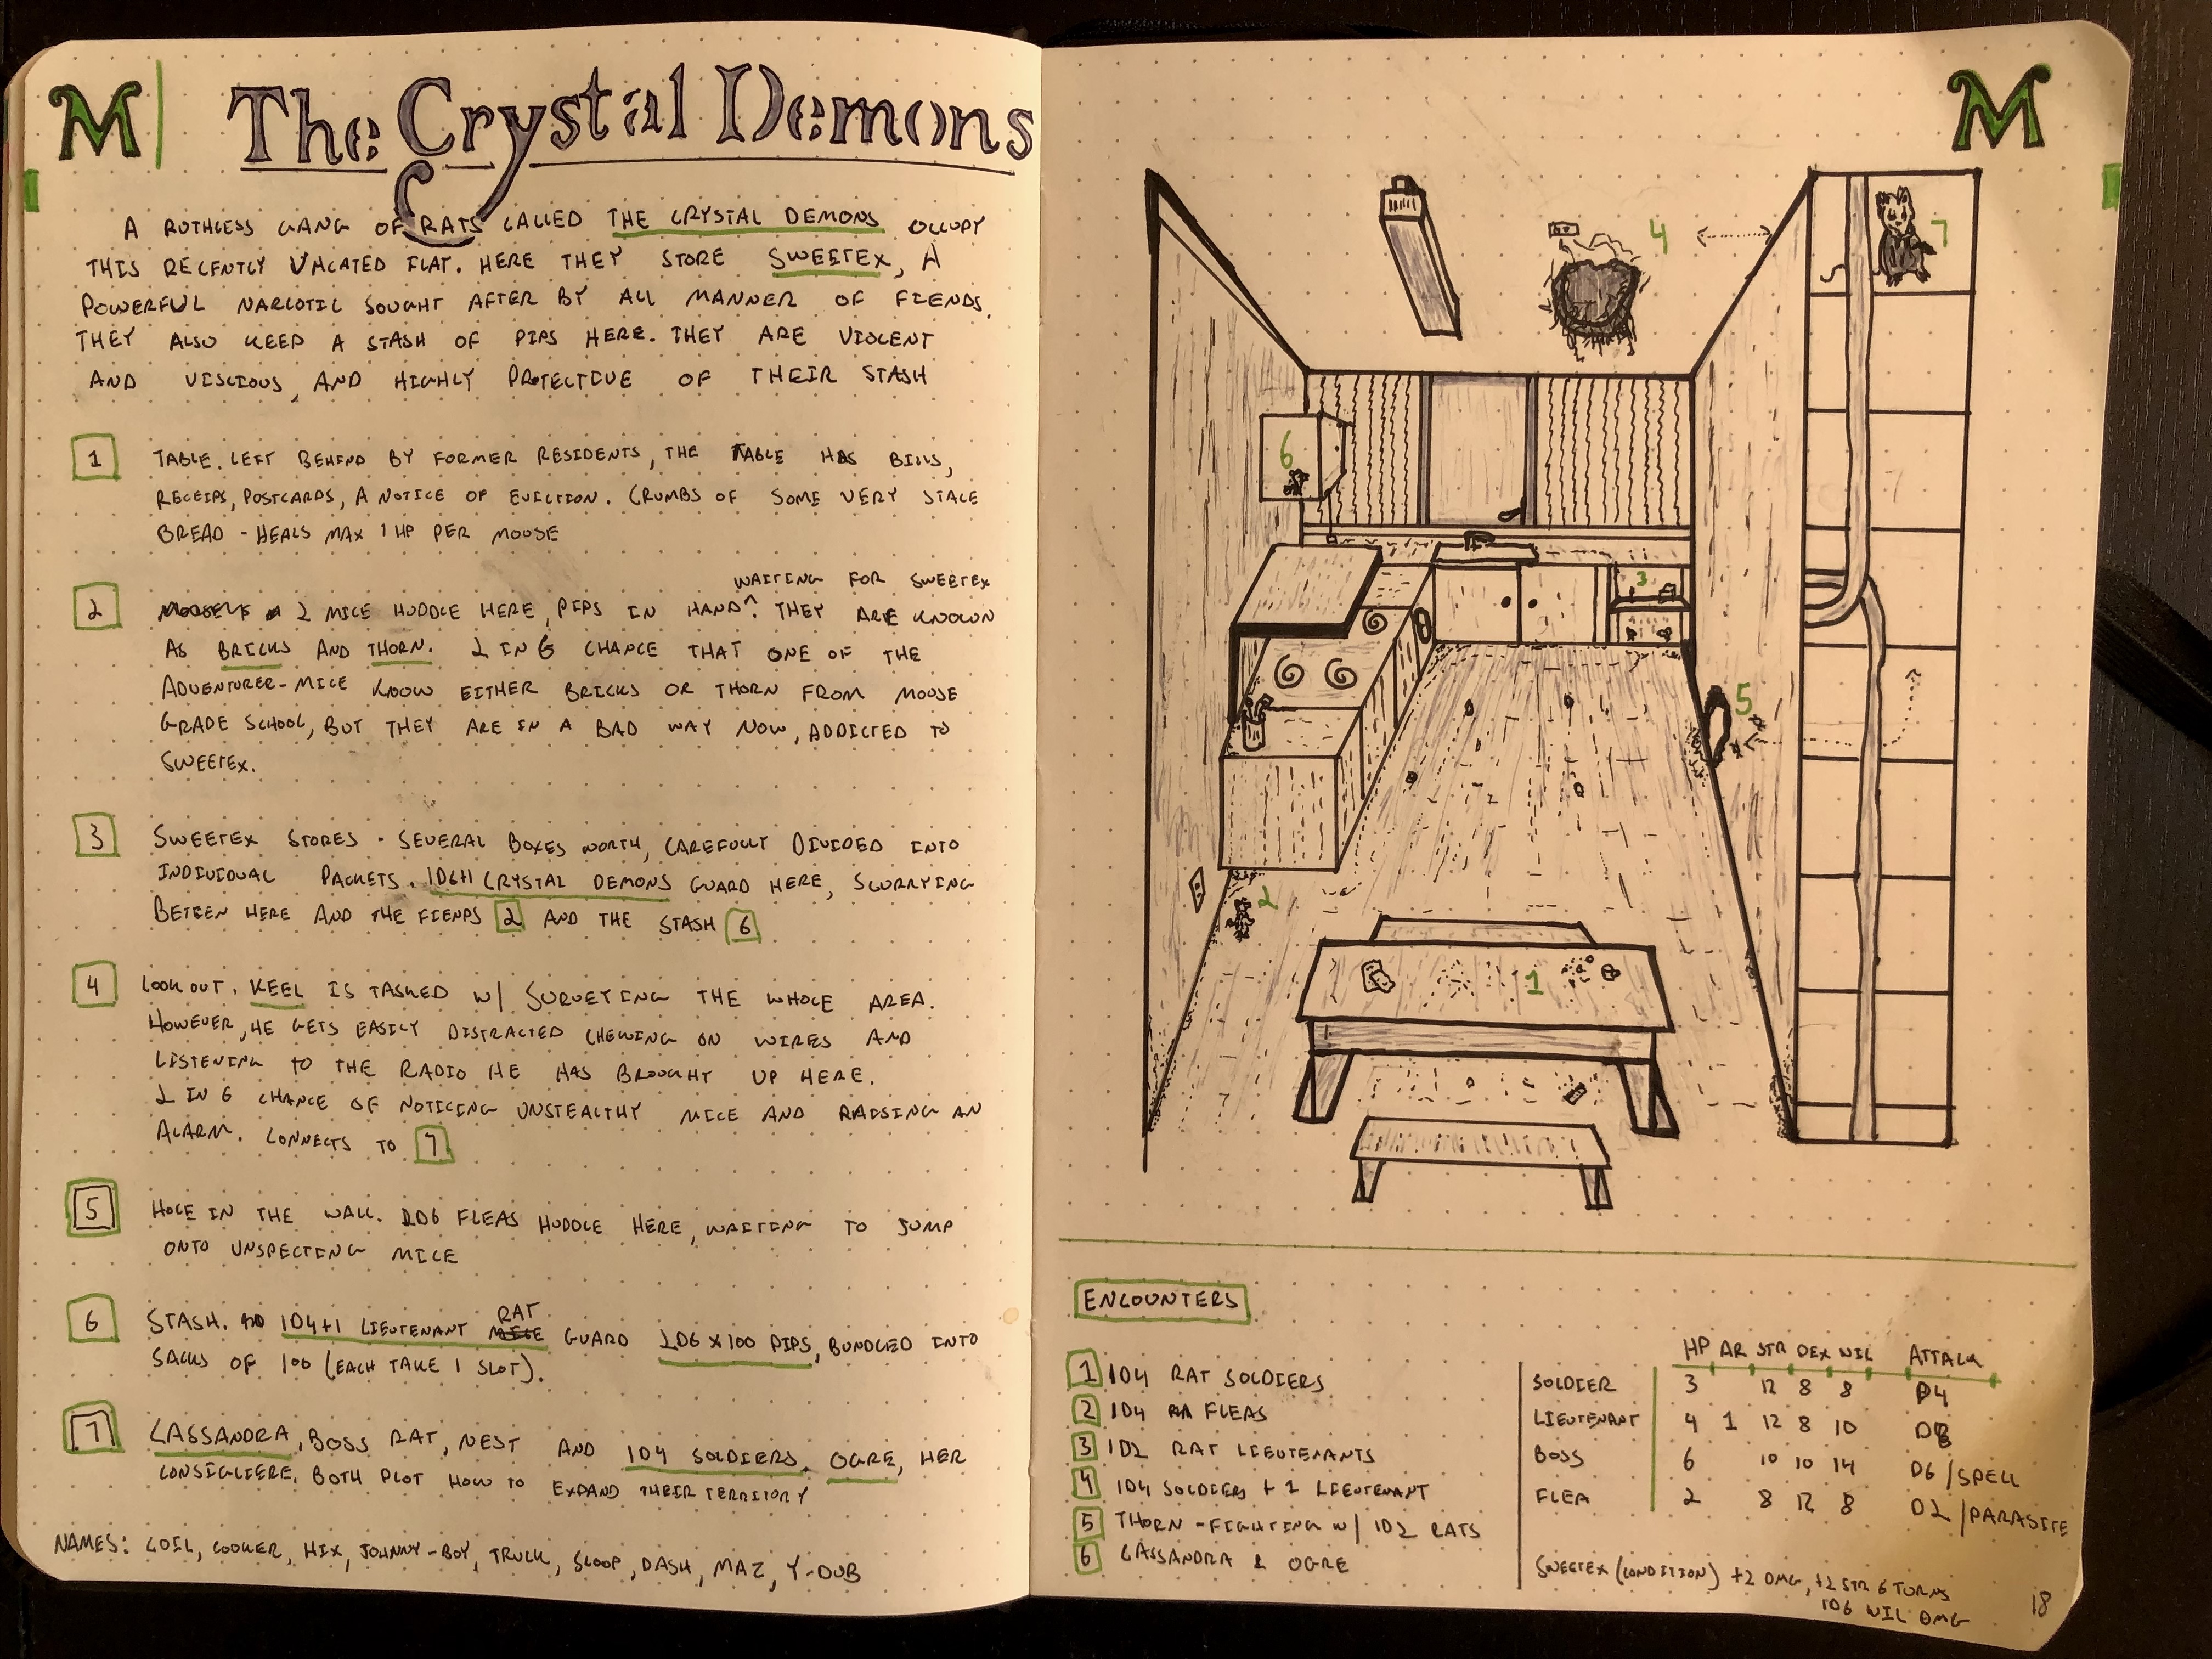 M
The Crystal Demons
A RUTHLESS GANG OF RATS CALLED THE CRYSTAL DEMONS OCCUPY
THIS RECENTLY VACATED FLAT. HERE THEY STORE SWEETEX, A
POWERFUL NARCOTIC SOUGHT AFTER BY ALL MANNER OF FIENDS.
THEY ALSO KEEP A STASH OF PIPS HERE. THEY ARE VIOLENT
AND VISCIOUS, AND HIGHLY PROTECTIVE OF THEIR STASH
1 TABLE. LEFT BEHIND BY FORMER RESIDENTS, THE TABLE HAS BILLS,
RECEIPS, POSTCARDS, A NOTICE OF EVICTION. CRUMBS OF SOME VERY STALE
BREAD - HEALS MAX 1 HP PER MOOSE
WAITING FOR SWEETEX
2 2 MICE HUDDLE HERE, PIPS IN HAND^. THEY ARE KNOWN
AS BRICKS AND THORN. 2 IN 6 CHANCE THAT ONE OF THE
ADVENTURER-MICE KNOW EITHER BRICKS OR THORN FROM MOOSE
GRADE SCHOOL, BUT THEY ARE IN A BAD WAY NOW, ADDICTED TO
SWEETEX.
3 SWEETEX STORES - SEVERAL BOXES WORTH, CAREFULLY DIVIDED INTO
INDIVIDUAL PACKETS. 1D6+1 CRYSTAL DEMONS GUARD HERE, SCURRYING
BETEEN HERE AND THE FIENDS 2 AND THE STASH 6
4 LOOK OUT. KEEL IS TASKED W/ SURVEYING THE WHOLE AREA.
HOWEVER, HE GETS EASILY DISTRACTED CHEWING ON WIRES AND
LISTENING TO THE RADIO HE HAS BROUGHT UP HERE.
2 IN 6 CHANCE OF NOTICING UNSTEALTHY MICE AND RAISING AN
ALARM. CONNECTS TO 7
5 HOLE IN THE WALL. 2D6 FLEAS HUDDLE HERE, WAITING TO JUMP
ONTO UNSPECTING MICE
RAT
6 STASH. 1D4+1 LIEUTENANT GUARD 2D6 X 100 PIPS, BUNDLED INTO
SACKS OF 100 (EACH TAKE 1 SLOT).
7 CASSANDRA, BOSS RAT, NEST AND 1D4 SOLDIERS. OGRE, HER
CONSIGLIERE. BOTH PLOT HOW TO EXPAND THEIR TERRITORY
NAMES: COIL, COOKER, HIX, JOHNNY-BOY, TRUCK, SCOOP, DASH, MAZ, Y-DUB
M
4
7
6
3
5
2
1
ENCOUNTERS
1 1D4 RAT SOLDIERS
2 1D4 FLEAS
3 1D2 RAT LIEUTENANTS
4 1D4 SOLDIERS + 1 LIEUTENANT
5 THORN - FIGHTING W/ 1D2 RATS
6 CASSANDRA & OGRE
HP AR STR DEX WIL ATTACK
SOLDIER 3 12 8 8 D4
LIEUTENANT 4 1 12 8 10 D8
BOSS 6 10 10 14 D6/SPELL
FLEA 2 8 12 8 D2/PARASITE
SWEETEX (CONDITION) +2 DMG, +2 STR 6 TURNS
1D6 WIL DMG
18